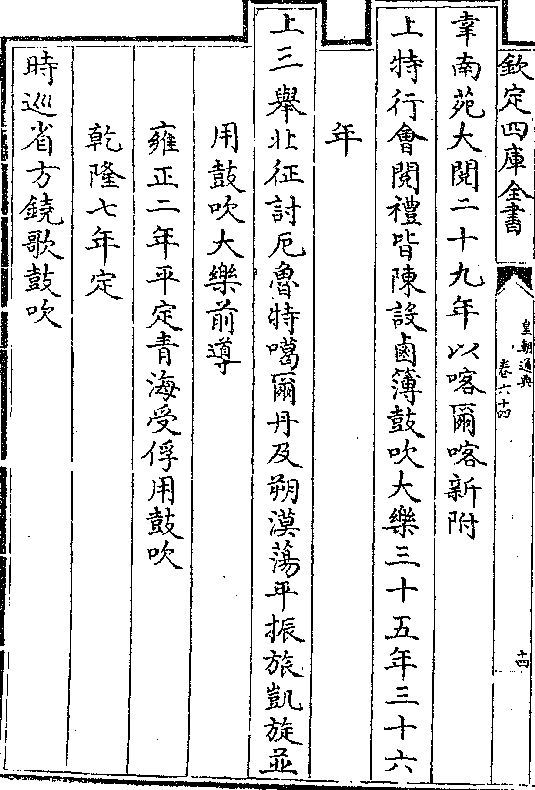 欽定四庫全書
皇朝通典
卷六十四
十四
幸南苑大閱二十九年以喀爾喀新附
上特行會閱禮皆陳設鹵簿鼓吹大樂三十五年三十六
年
上三舉北征討厄魯特噶爾丹及朔漠蕩平振旅凱旋並
用鼓吹大樂前導
雍正二年平定青海受俘用鼓吹
乾隆七年定
時巡省方鐃歌鼓吹